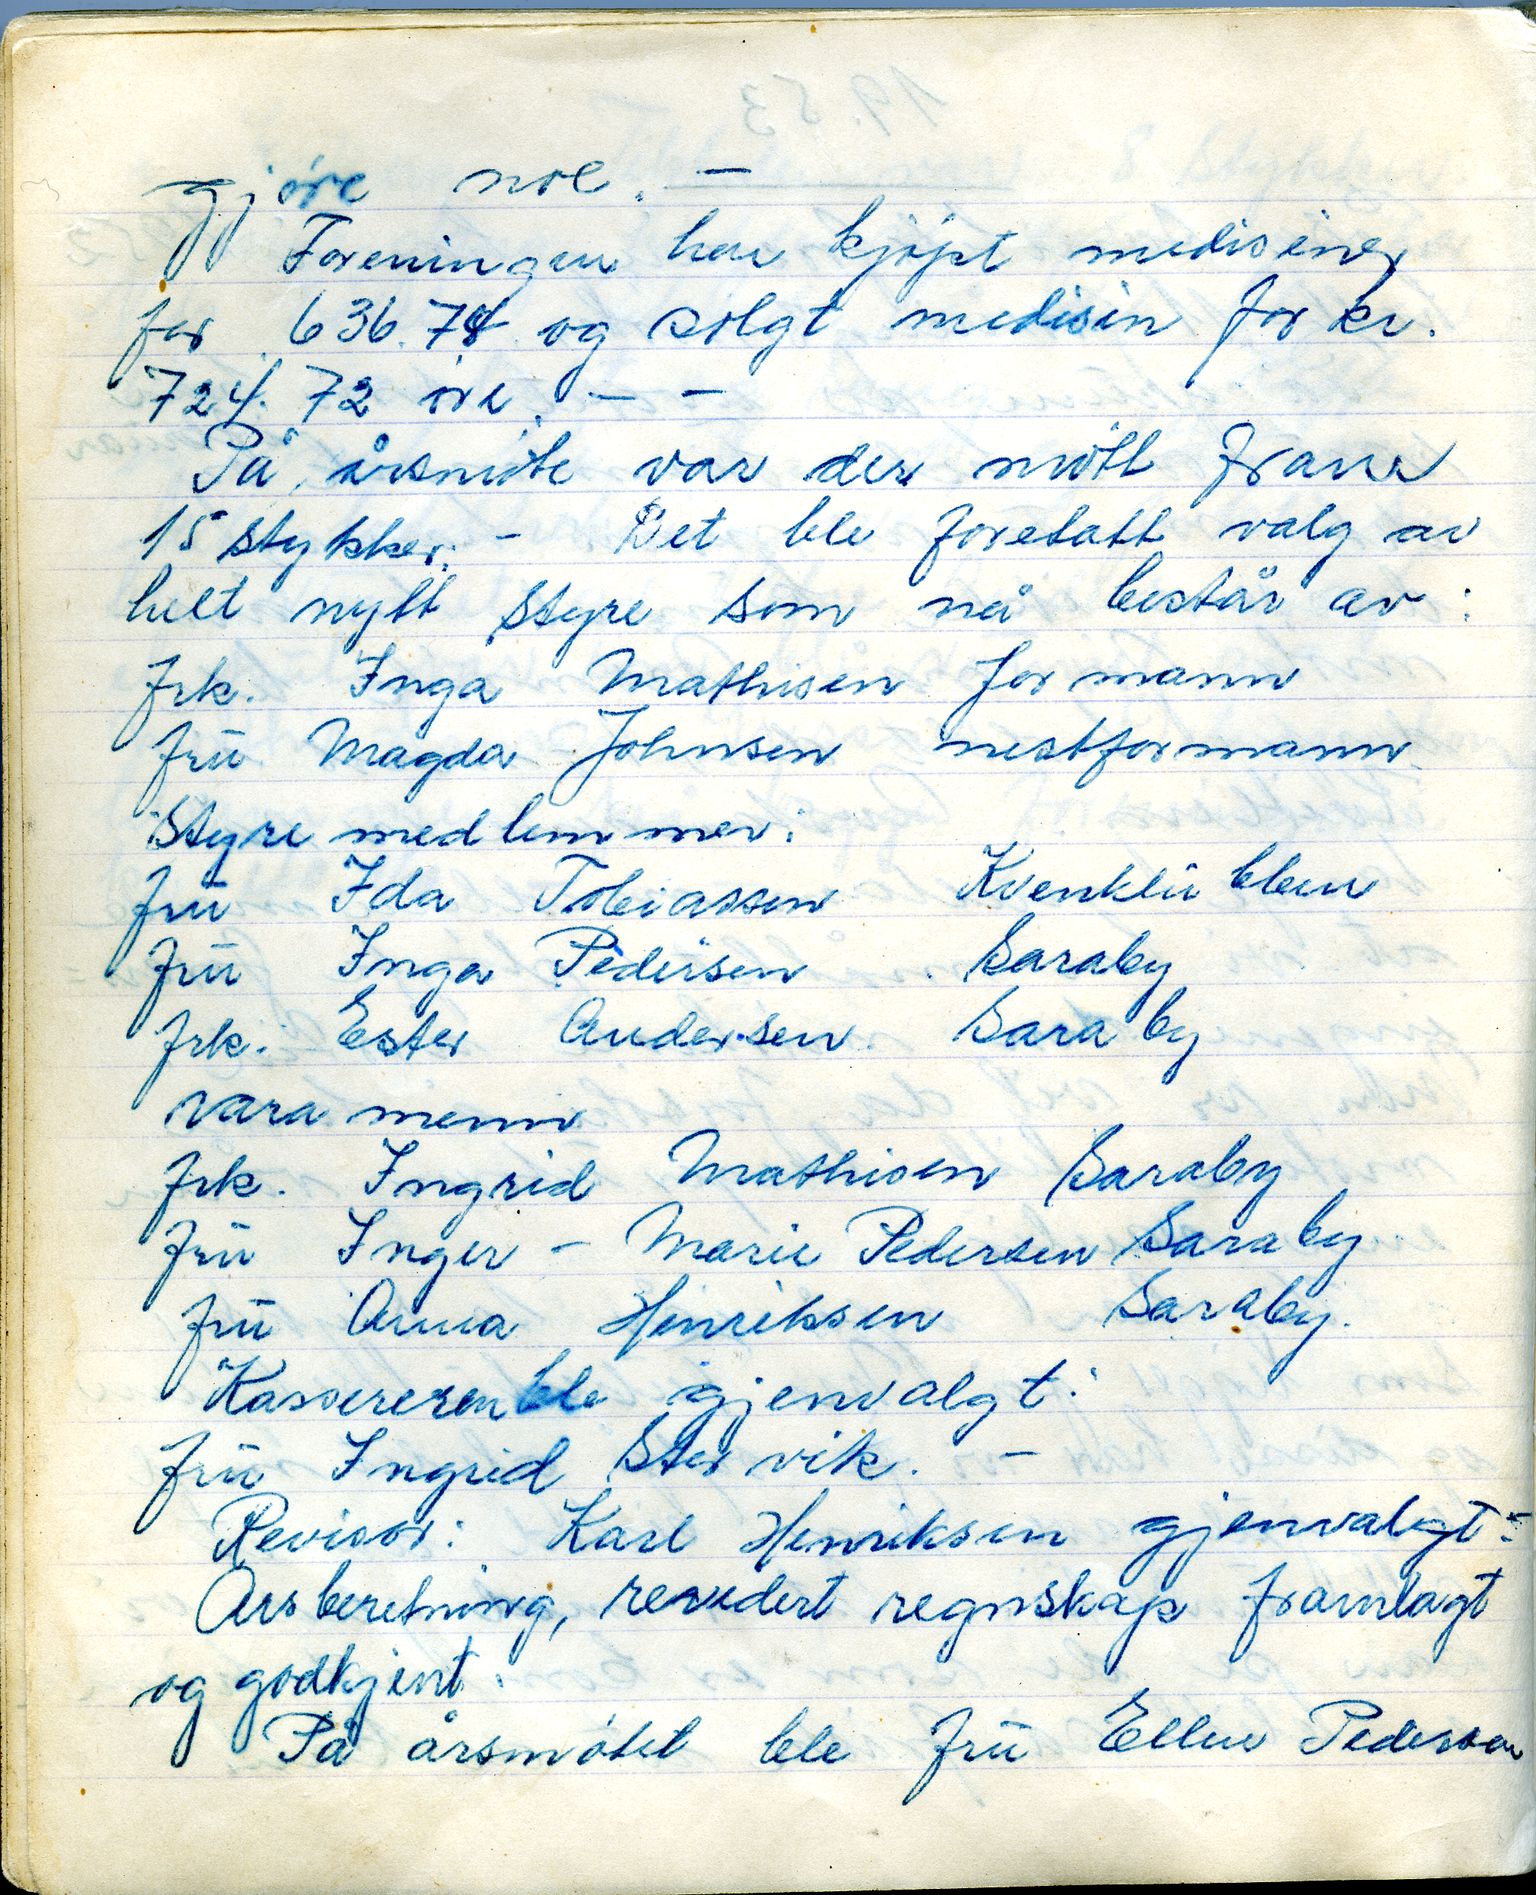 gjøre noe. —
Foreningen har kjøpt medisiner
for 636.78 og solgt medisin for kr.
724.72 øre. — —
På årsmøte var der møtt fram
15 stykker. - Det ble foretatt valg av
helt nytt styre som nå består av:
frk. Inga Mathisen formann
fru Magda Johnsen nestformann
Styremedlemmer:
fru Ida Tobiassen Kvenklubben
fru Inga Pedersen Saraby
frk. Ester Andersen Saraby
varamenn
frk. Ingrid Mathisen Saraby
fru Inger-Marie Pedersen Saraby
fru Anna Henriksen Saraby.
Kassereren ble gjenvalgt:
fru Ingrid Stervik. —
Revisor: Karl Henriksen gjenvalgt:-
Årsberetning, revidert regnskap framlagt
og godkjent.
På årsmøtet ble fru Ellen Pedersen